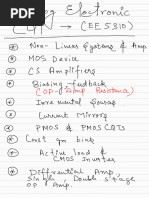 Electronic
CQT → (EE5310)
Non-Linear Systems & Amp
MOS Device
CS Amplifiers
Biasing feedback
(OP-Amp Resistance)
Incremental Sources
Current Mirrors
PMOS & PMOS CQTS
Const gm bias
Active load &
CMOS Inverter
Differential Amp,
Single, Double stage
OP Amp.